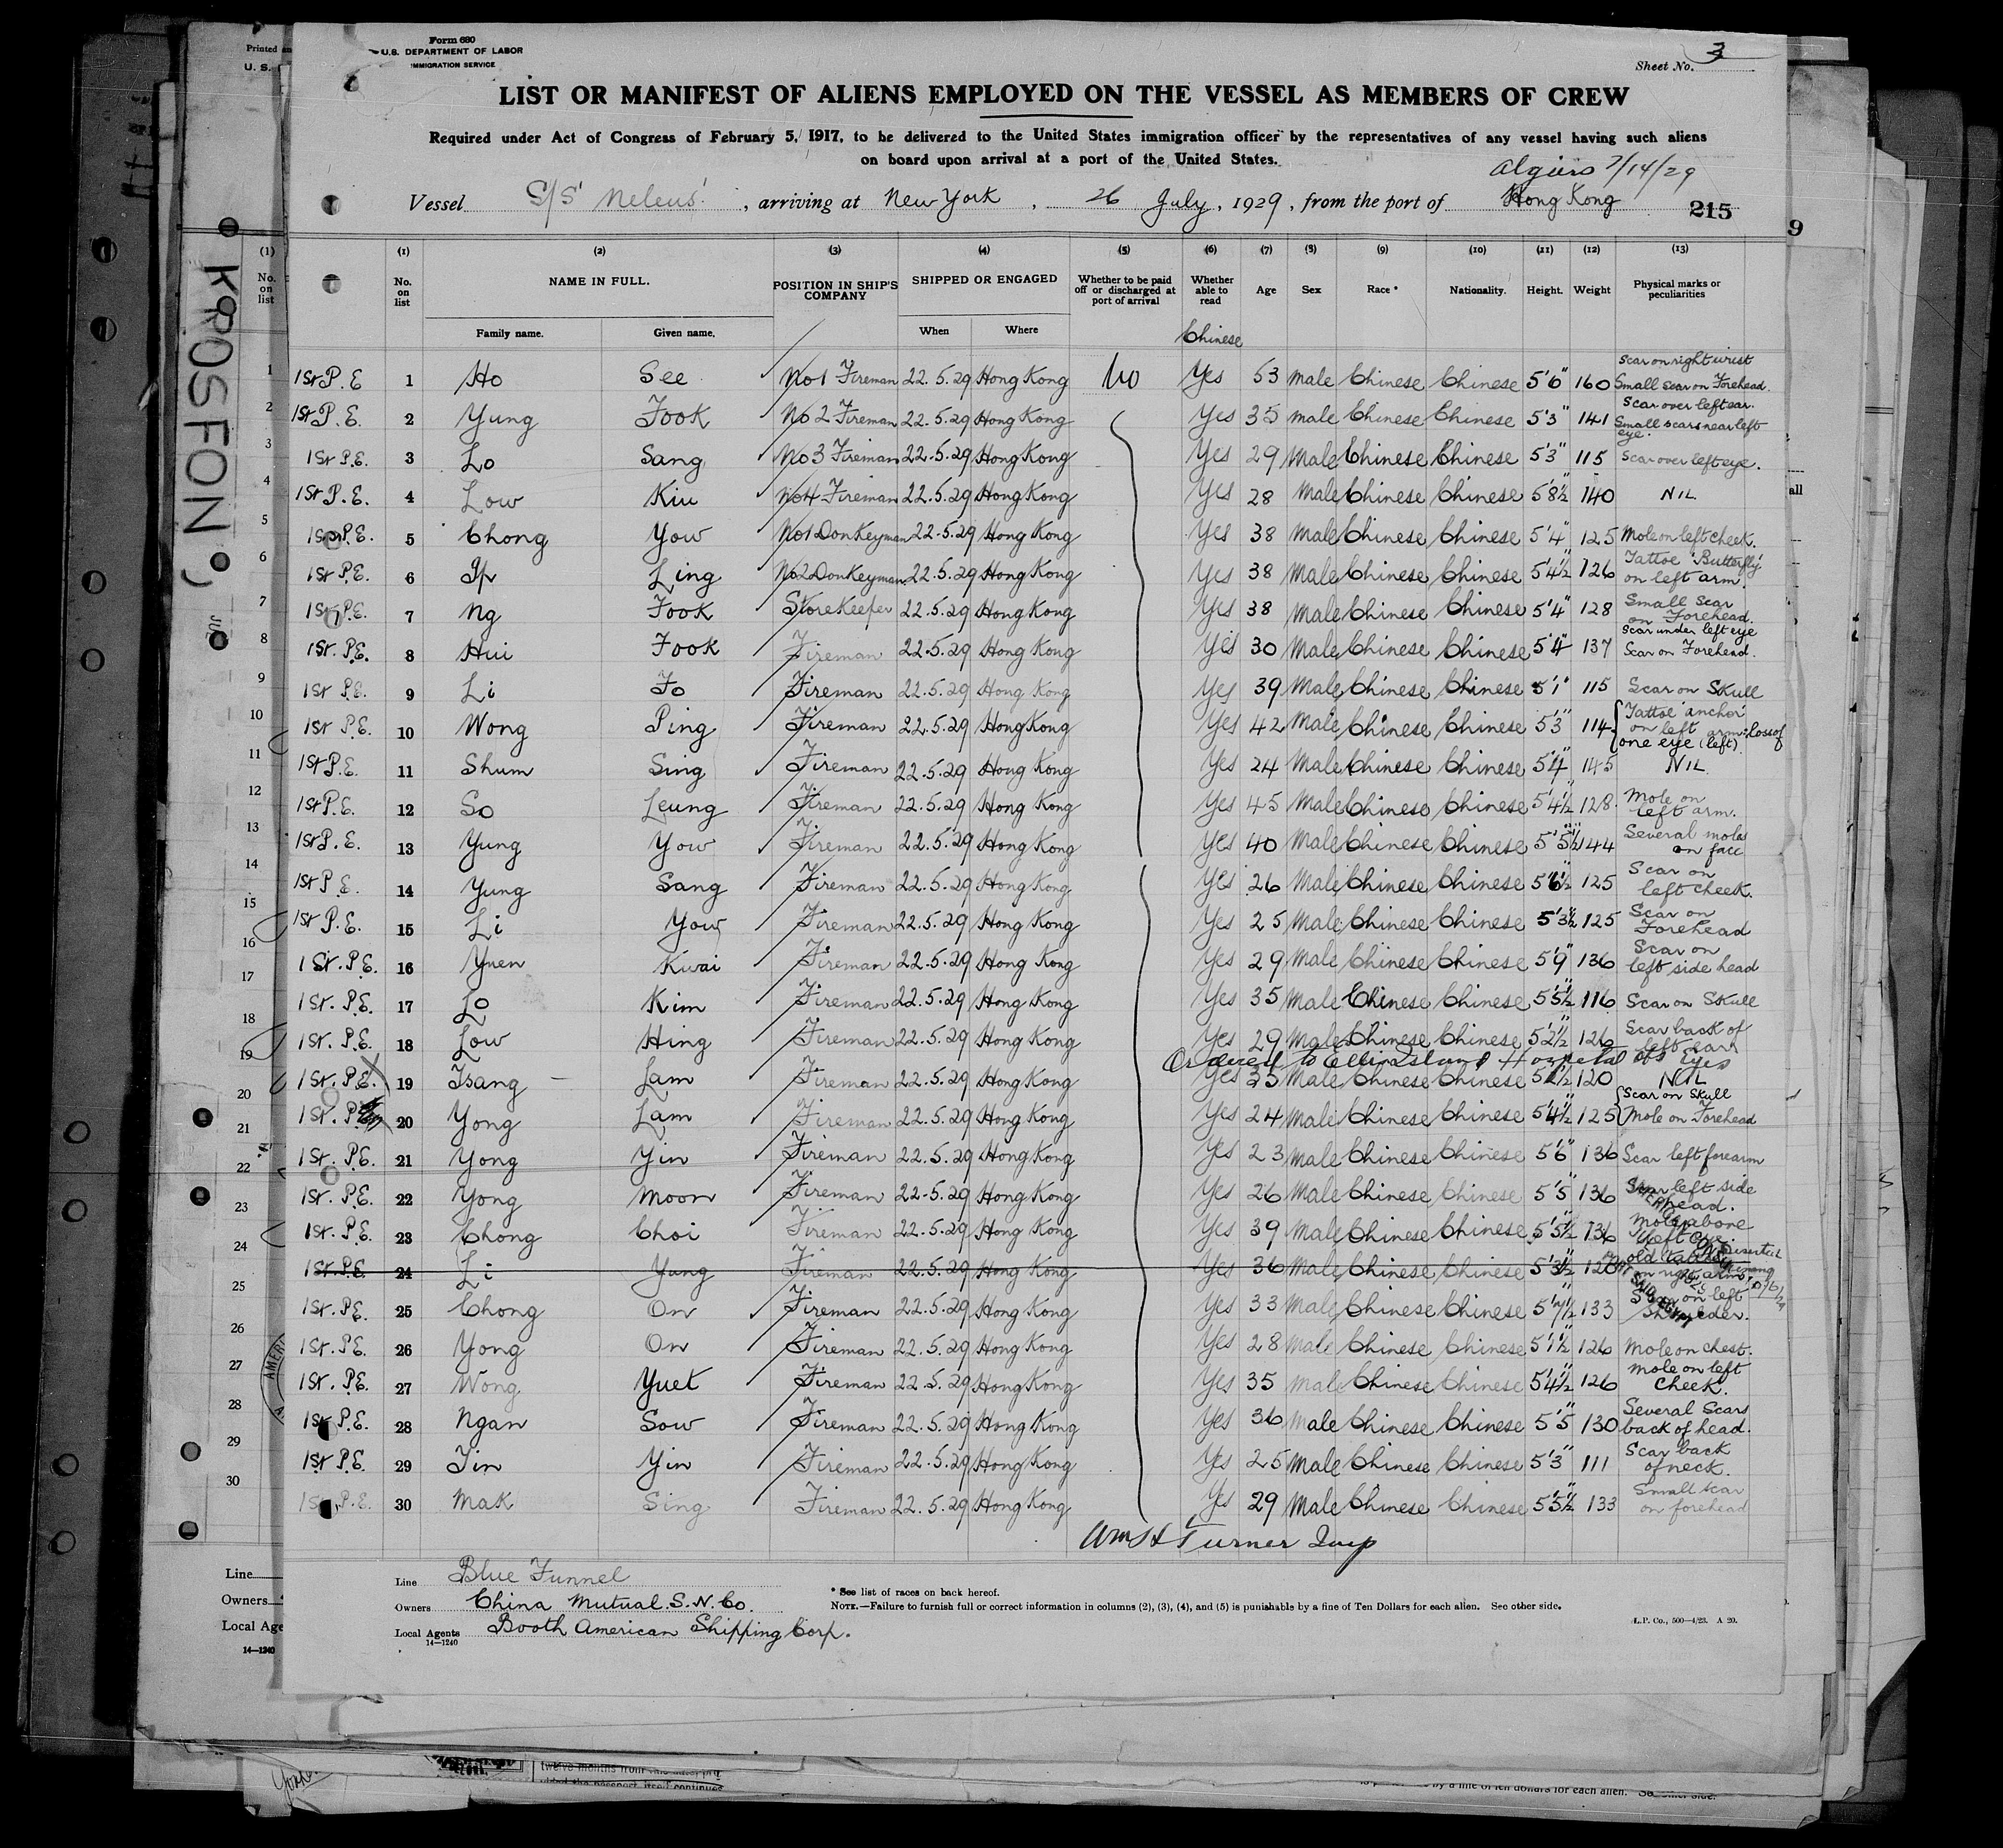 Form 680
U.S. DEPARTMENT OF LABOR
IMMIGRATION SERVICE
Sheet No. 3
LIST OR MANIFEST OF ALIENS EMPLOYED ON THE VESSEL AS MEMBERS OF CREW
Required under Act of Congress of February 5, 1917, to be delivered to the United States immigration officer by the representatives of any vessel having such aliens
on board upon arrival at a port of the United States.
Algiers 7/14/29
Vessel S/S Neleus, arriving at New York, 26 July, 1929, from the port of Hong Kong 215
(1) (2) (3) (4) (5) (6) (7) (8) (9) (10) (11) (12) (13)
No. on list NAME IN FULL. POSITION IN SHIP'S COMPANY SHIPPED OR ENGAGED Whether to be paid off or discharged at port of arrival Whether able to read Age Sex Race * Nationality. Height. Weight Physical marks or peculiarities
Family name. Given name. When Where Chinese
1st P.E 1 Ho See No1 Fireman 22.5.29 Hong Kong No Yes 53 Male Chinese Chinese 5'6" 160 Scar on right wrist Small scar on Forehead.
1st P.E. 2 Yung Fook No 2 Fireman 22.5.29 Hong Kong Yes 35 male Chinese Chinese 5'3" 141 Scar over left ear. Small scars near left eye.
1st P.E. 3 Lo Sang No3 Fireman 22.5.29 Hong Kong Yes 29 Male Chinese Chinese 5'3" 115 Scar over left eye.
1st P.E. 4 Low Kiu No4 Fireman 22.5.29 Hong Kong Yes 28 Male Chinese Chinese 5'8½ 140 NIL
1st P.E. 5 Chong You No1 Donkeyman 22.5.29 Hong Kong Yes 38 Male Chinese Chinese 5'4" 125 Mole on left cheek.
1st P.E. 6 Ip Ling No2 Donkeyman 22.5.29 Hong Kong Yes 38 Male Chinese Chinese 5'4½" 126 Tattoe 'Butterfly' on left arm.
1st P.E. 7 Ng Fook StoreKeeper 22.5.29 Hong Kong Yes 38 Male Chinese Chinese 5'4" 128 Small Scar on Forehead.
1st. P.E. 8 Hui Fook Fireman 22.5.29 Hong Kong Yes 30 Male Chinese Chinese 5'4" 137 Scar under left eye Scar on Forehead.
1st P.E. 9 Li Fo Fireman 22.5.29 Hong Kong Yes 39 Male Chinese Chinese 5'1" 115 Scar on Skull
1st P.E. 10 Wong Ping Fireman 22.5.29 Hong Kong Yes 42 Male Chinese Chinese 5'3" 114 Tattoe 'anchor' on left arm: loss of one eye (left)
1st P.E. 11 Shum Sing Fireman 22.5.29 Hong Kong Yes 24 Male Chinese Chinese 5'4" 145 NIL
1st P.E. 12 So Leung Fireman 22.5.29 Hong Kong Yes 45 Male Chinese Chinese 5'4½" 128. Mole on left arm.
1st P.E. 13 Yung You Fireman 22.5.29 Hong Kong Yes 40 Male Chinese Chinese 5'5½" 144 Several moles on face
1st P E. 14 Yung Sang Fireman 22.5.29 Hong Kong Yes 26 Male Chinese Chinese 5'6½" 125 Scar on left cheek.
1st P.E. 15 Li You Fireman 22.5.29 Hong Kong Yes 25 Male Chinese Chinese 5'3½" 125 Scar on Forehead
1 St. P.E. 16 Yuen Kwai Fireman 22.5.29 Hong Kong Yes 29 Male Chinese Chinese 5'9" 136 Scar on left side head
1 St. P.E. 17 Lo Kim Fireman 22.5.29 Hong Kong Yes 35 Male Chinese Chinese 5'5½" 116 Scar on Skull
1 St. P.E. 18 Low Hing Fireman 22.5.29 Hong Kong Yes 29 Male Chinese Chinese 5'2½" 126 Scar back of left ear
Ordered to Ellis Island Hospital Eyes
1 St. P.E. 19 Tsang Lam Fireman 22.5.29 Hong Kong Yes 35 Male Chinese Chinese 120 NIL
1 St. P.E. 20 Yong Lam Fireman 22.5.29 Hong Kong Yes 24 Male Chinese Chinese 5'4½" 125 Scar on Skull Mole on Forehead
1 St. P.E. 21 Yong Yin Fireman 22.5.29 Hong Kong Yes 23 Male Chinese Chinese 5'6" 136 Scar left forearm
1 St. P.E. 22 Yong Moon Fireman 22.5.29 Hong Kong Yes 26 Male Chinese Chinese 5'5" 136 Scar left side head.
1 St. P.E. 23 Chong Choi Fireman 22.5.29 Hong Kong Yes 39 Male Chinese Chinese 5'5½" 136 Mole above left eye.
1 St. P.E. 24 Li Yung Fireman 22.5.29 Hong Kong Yes 36 Male Chinese Chinese 5'3½" 120 old on right arm. Deserted
1 St. P.E. 25 Chong On Fireman 22.5.29 Hong Kong Yes 33 Male Chinese Chinese 5'7½" 133 on left Shoulder.
1 St. P.E. 26 Yong On Fireman 22.5.29 Hong Kong Yes 28 Male Chinese Chinese 5'1½" 126 Mole on chest.
1 St. P.E. 27 Wong Yuet Fireman 22.5.29 Hong Kong Yes 35 Male Chinese Chinese 5'4½" 126 Mole on left Cheek.
1 St. P.E. 28 Ngan Sow Fireman 22.5.29 Hong Kong Yes 36 Male Chinese Chinese 5'5" 130 Several Scars back of head.
1 St. P.E. 29 Tin Yin Fireman 22.5.29 Hong Kong Yes 25 Male Chinese Chinese 5'3" 111 Scar back of neck.
1 St. P.E. 30 Mak Sing Fireman 22.5.29 Hong Kong Yes 29 Male Chinese Chinese 5'5½" 133 Small scar on forehead
Turner Insp
Line Blue Funnel
Owners China Mutual S.N.Co.
Local Agents Booth American Shipping Corp.
14—1240
* See list of races on back hereof.
NOTE.—Failure to furnish full or correct information in columns (2), (3), (4), and (5) is punishable by a fine of Ten Dollars for each alien. See other side.
L.P. Co., 500—4/23. A 20.
Printed
U. S.
(1)
No. on list
1
2
3
4
5
6
7
8
9
10
11
12
13
14
15
16
17
18
19
20
21
22
23
24
25
26
27
28
29
30
Line
Owners
Local Age
14—1240
KROSFON
9
all
by a fine of ten dollars for each alien.